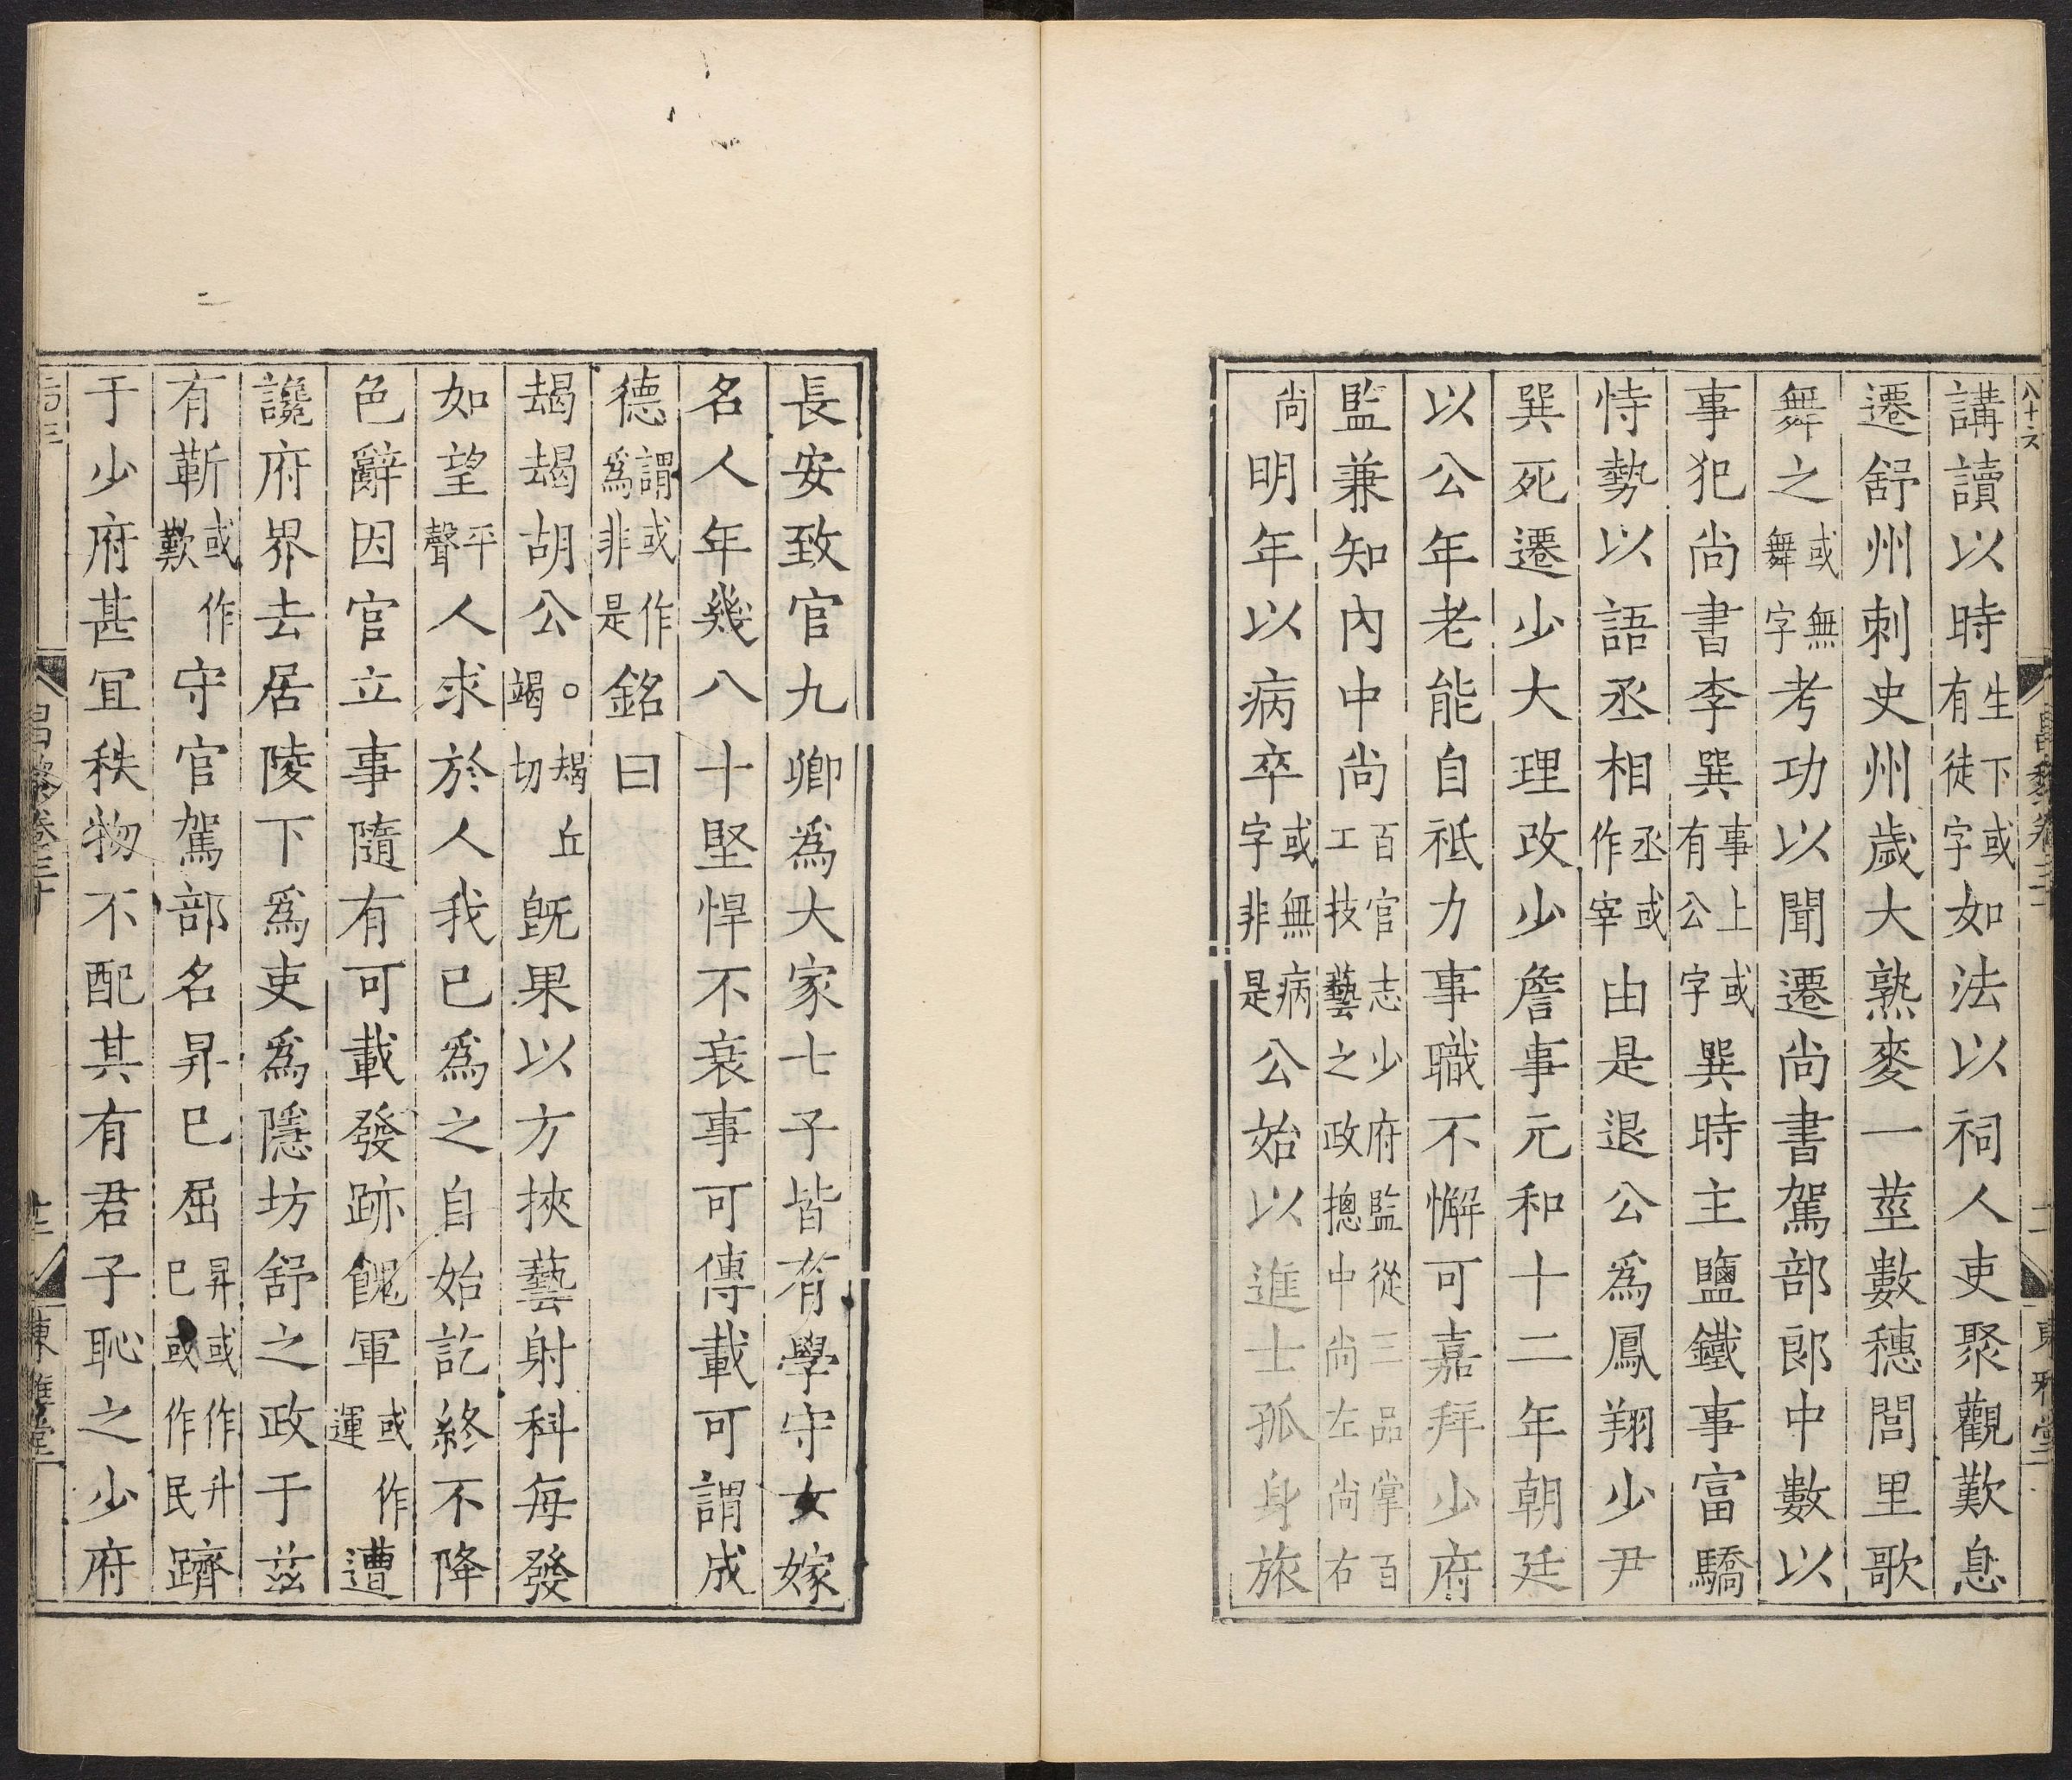 講讀以時生下或有徒字如法以祠人吏聚觀歎息
遷舒州刺史州歲大熟麥一莖數穗閭里歌
舞之或無舞字考功以聞遷尚書駕部郎中數以
事犯尚書李巽事上或有公字巽時主鹽鐵事富驕
恃勢以語丞相丞或作宰由是退公爲鳳翔少尹
巽死遷少大理改少詹事元和十二年朝廷
以公年老能自祗力事職不懈可嘉拜少府
監兼知內中尚百官志少府監從三品掌百工技藝之政摠中尚左尚右
尚明年以病卒或無病字非是公始以進士孤身旅
長安致官九卿爲大家七子皆有學守女嫁
名人年幾八十堅悍不衰事可傳載可謂成
德謂或作爲非是銘曰
朅朅胡公。朅丘竭切旣果以方挾藝射科每發
如望平聲人求於人我已爲之自始訖終不降
色辭因官立事隨有可載發跡餽軍或作運遭
讒府界去居陵下爲吏爲隱坊舒之政于茲
有蘄或作歎守官駕部名昇已屈昇或作升已或作民躋
于少府甚冝秩物不配其有君子恥之少府
昌黎卷三十
東雅堂